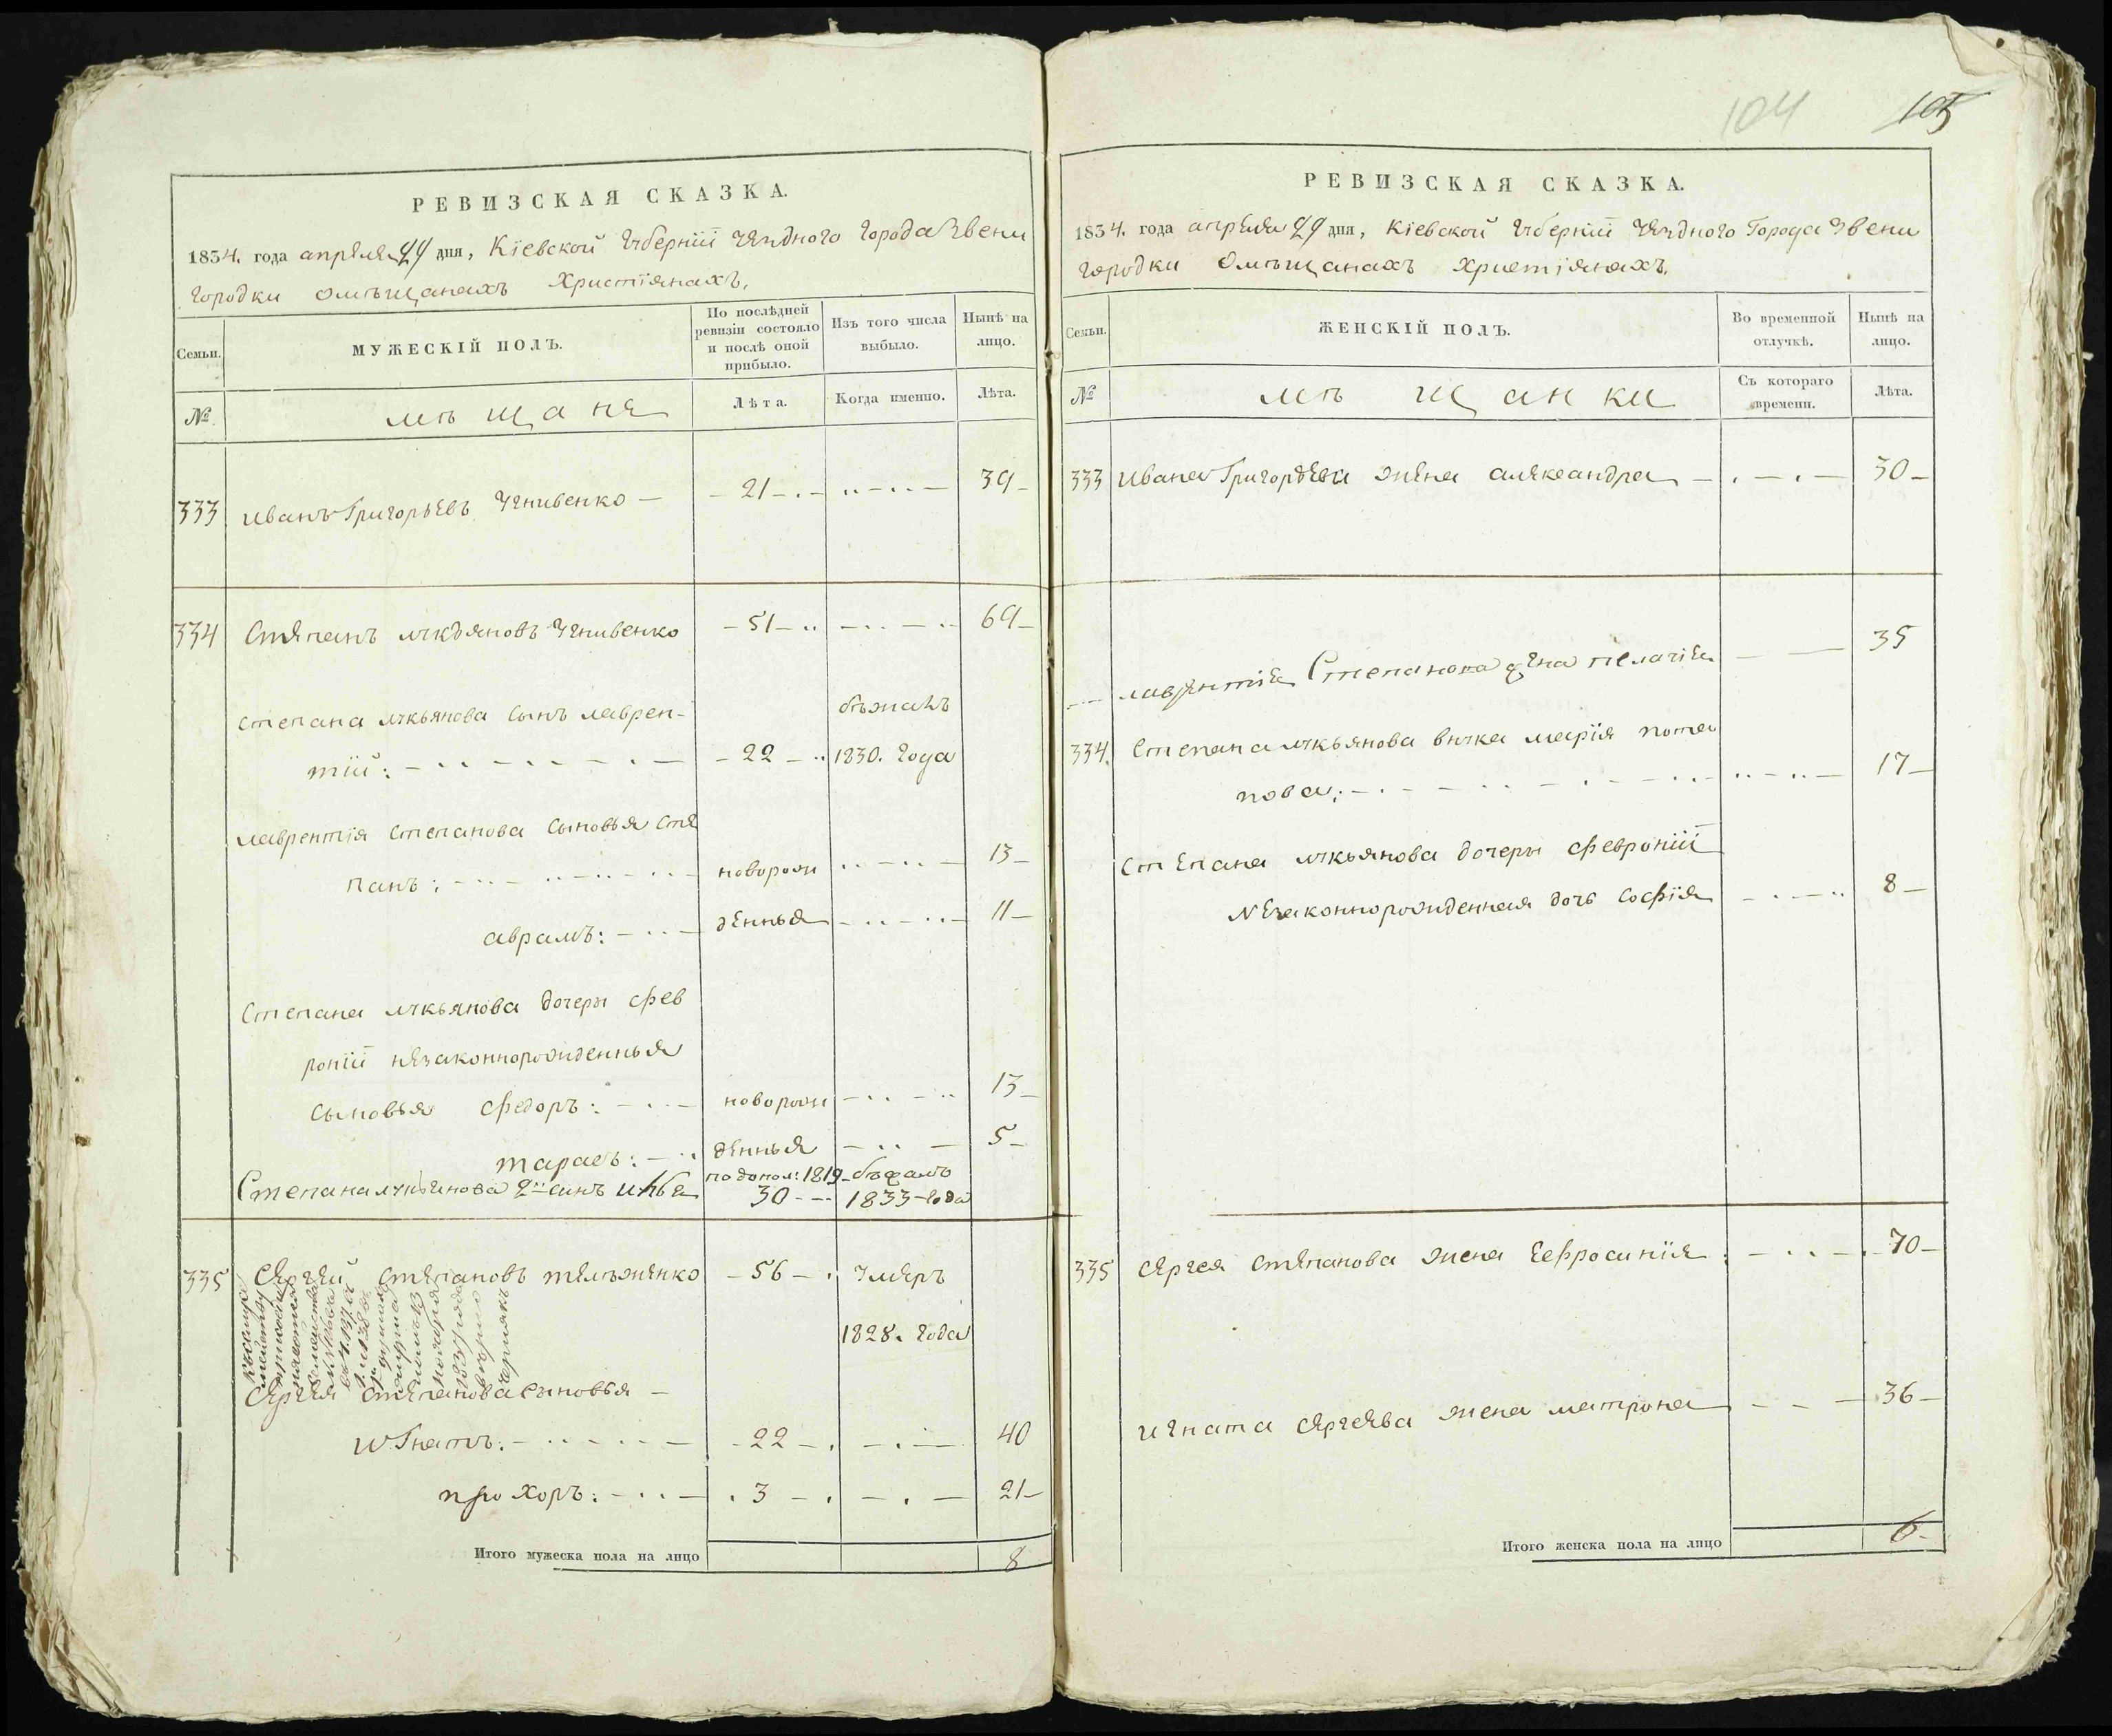 104 105
РЕВИЗСКАЯ СКАЗКА.
1834. года апреля 29 дня, Кіевской Губерніи Уезднаго Города Звени
городки Омѣщанахъ Христіянахъ,
Семьи.
МУЖЕСКІЙ ПОЛЪ.
По послѣдней
ревизіи состояло
и послѣ оной
прибыло.
Изъ того числа
выбыло.
Нынѣ на
лицо.
№
мѣщане
Лѣта.
Когда именно.
Лѣта.
333 Иванъ Григорьевъ — 21 39
334 Степанъ Лукьяновъ 51 69
Степана Лукьянова Сынъ Лаврен-
бѣжалъ
тій: 22 1830. года
Лаврентія Степанова Сыновья Сте
панъ: новорож 13
аврамъ: денныя 11
Степана Лукьянова дочери Фев
роніи незаконнорожденныя
Сыновья Федоръ: новорож 13
тарасъ: денныя 5
по допол: 1819 бѣжалъ
Степана Лукьянова 2й сынъ 30 1833 года
335 Сергей Степановъ 56 умеръ
1828. года
Сергея Степанова сыновья
Игнатъ: 22 40
прохоръ: 3 21
Итого мужеска пола на лицо 8
РЕВИЗСКАЯ СКАЗКА.
1834. года апреля 29 дня, Кіевской Губерніи Уезднаго Города Звени
городки Омѣщанахъ Христіянахъ.
Семьи.
ЖЕНСКІЙ ПОЛЪ.
Во временной
отлучкѣ.
Нынѣ на
лицо.
№
мѣщанки
Съ котораго
времени.
Лѣта.
333 Ивана Григорьева жена александра 30
Лаврентія Степанова жена пелагія 35
334. Степана Лукьянова внука марія пота
пова: 17
Степана Лукьянова дочери Февроніи
Незаконнорожденная дочь Софія 8
335 Сергея Степанова жена Еефросинія: 70
Игната Сергеева жена матрона 36
Итого женска пола на лицо 6